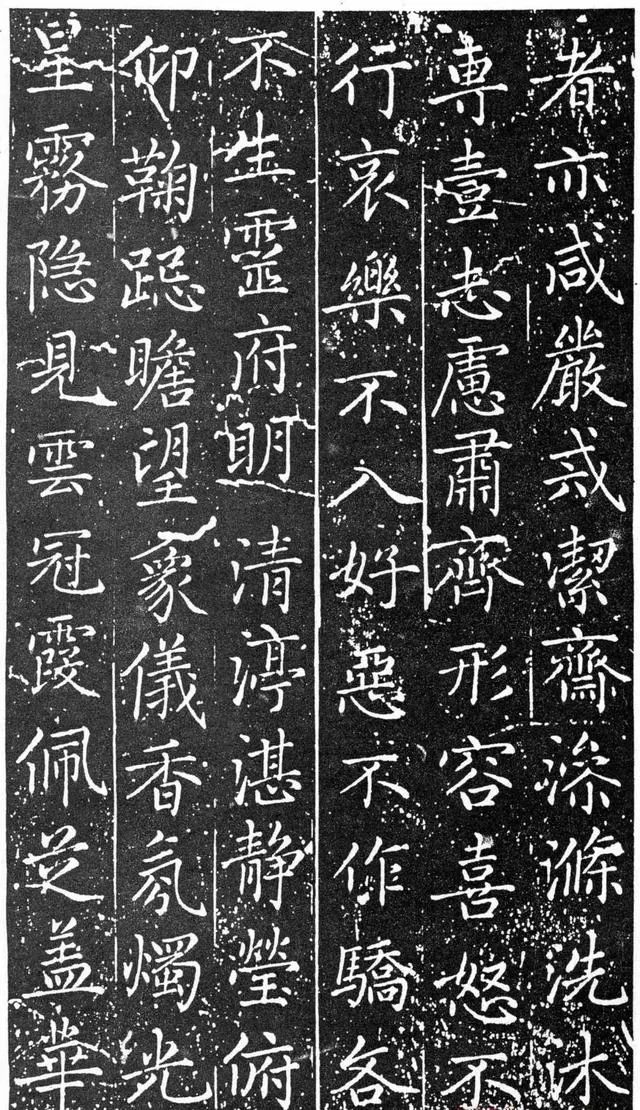 者亦咸嚴戒潔齋澡滌洗沐
專壹志慮肅齊形容喜怒不
行哀樂不入好惡不作驕各
不生靈府明清渟湛静瑩俯
仰鞠跽瞻望象儀香氛燭光
星霧隐見雲冠霞佩芝盖華